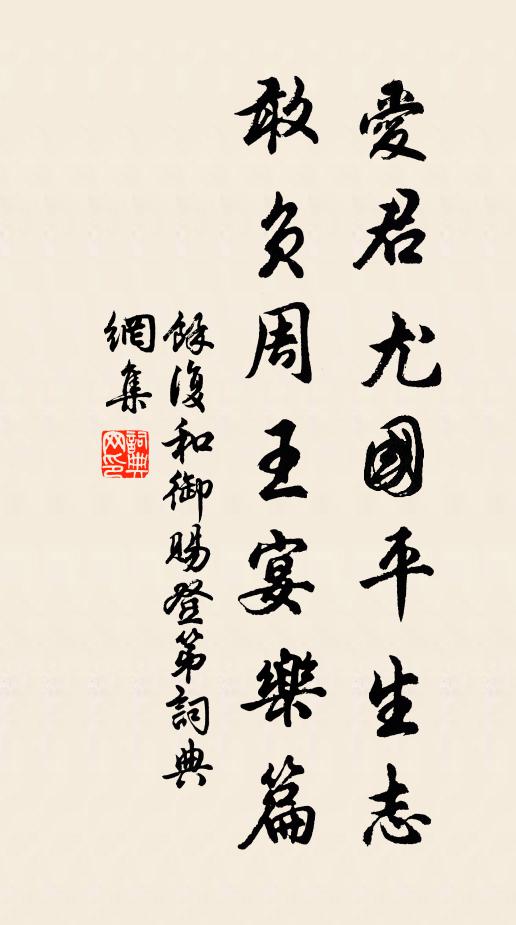 愛君尤國平生志
敢負周王宴樂篇
餘復和御賜登第詞典
網集
詞典網印